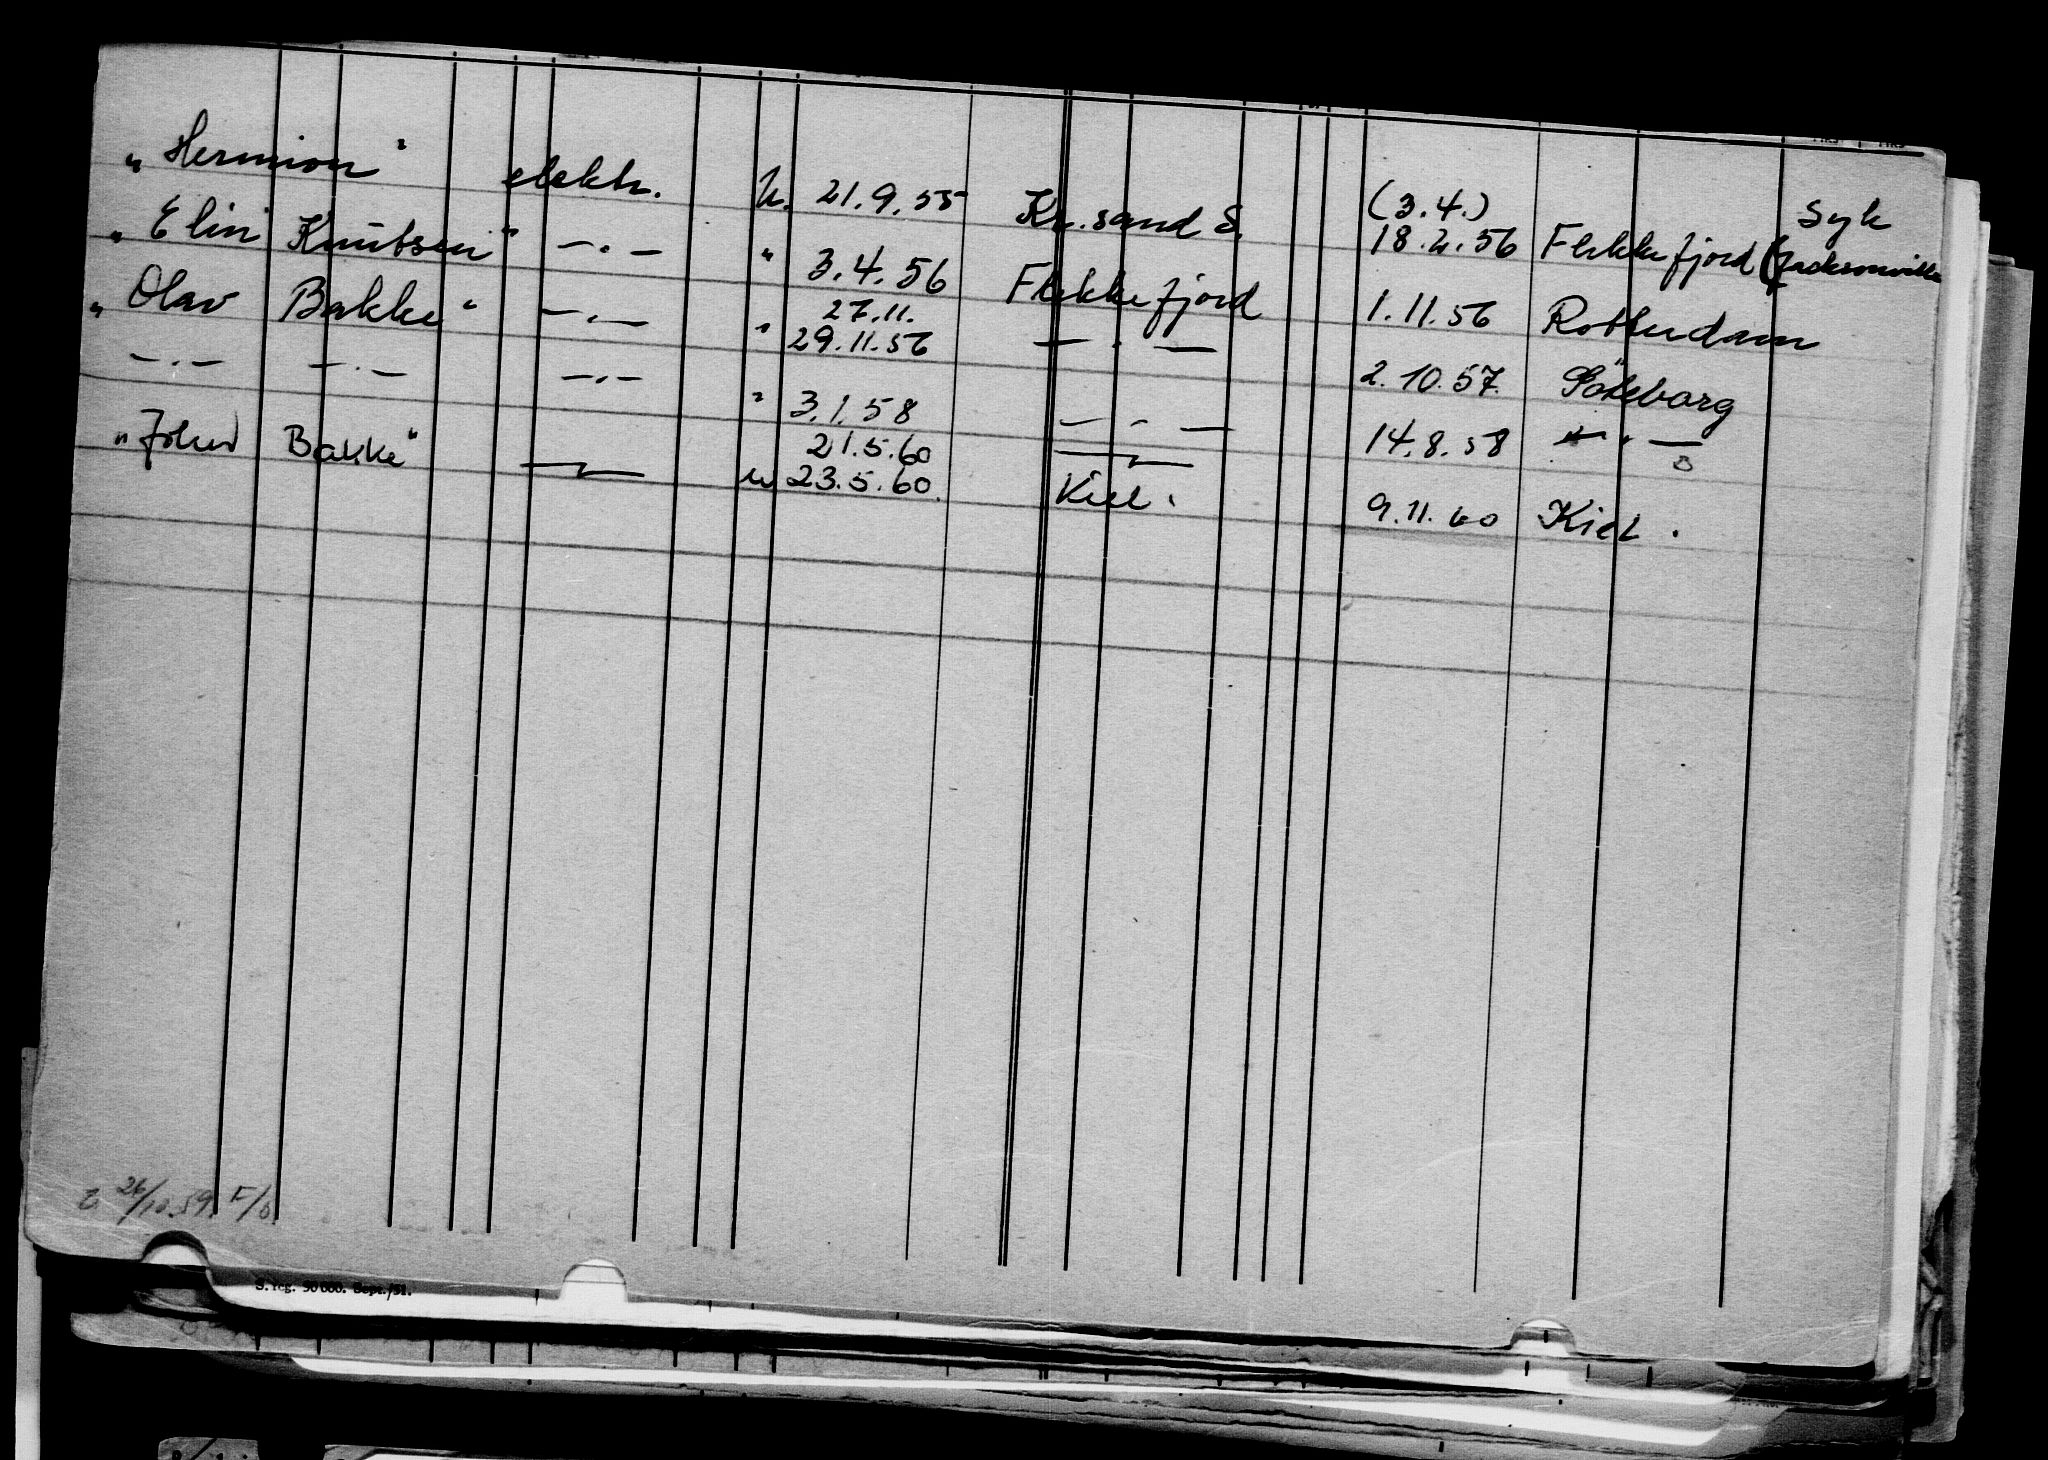 „Hermion" elektr. U. 21.9.55 Kr.sand S. (3.4.) 18.2.56 Flekkefjord (Jacksonville Syk
„Elin Knutsen" —.— " 3.4.56 Flekkefjord 1.11.56 Rotterdam
„Olav Bakke" —.— " 27.11. 29.11.56 — . — 2.10.57 Göteborg
—.— —.— —.— " 3.1.58 — - — 14.8.58 — . —
„John Bakke" — 21.5.60 23.5.60. Kiel. 9.11.60 Kiel.
26/10.59. F/
S. reg. 50 000. Sept./51.